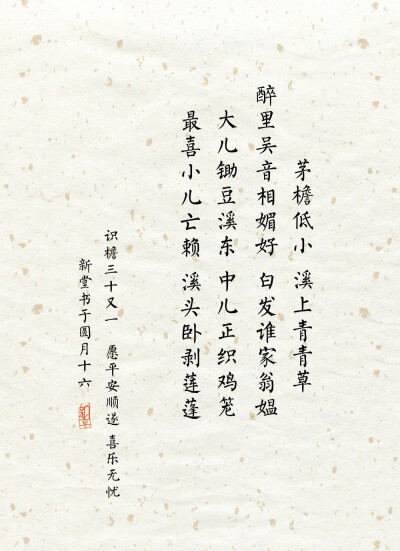 茅檐低小 溪上青青草
醉里吴音相媚好 白发谁家翁媪
大儿锄豆溪东 中儿正织鸡笼
最喜小儿亡赖 溪头卧剥莲蓬
识檐三十又一 愿平安顺遂 喜乐无忧
新堂书于圆月十六